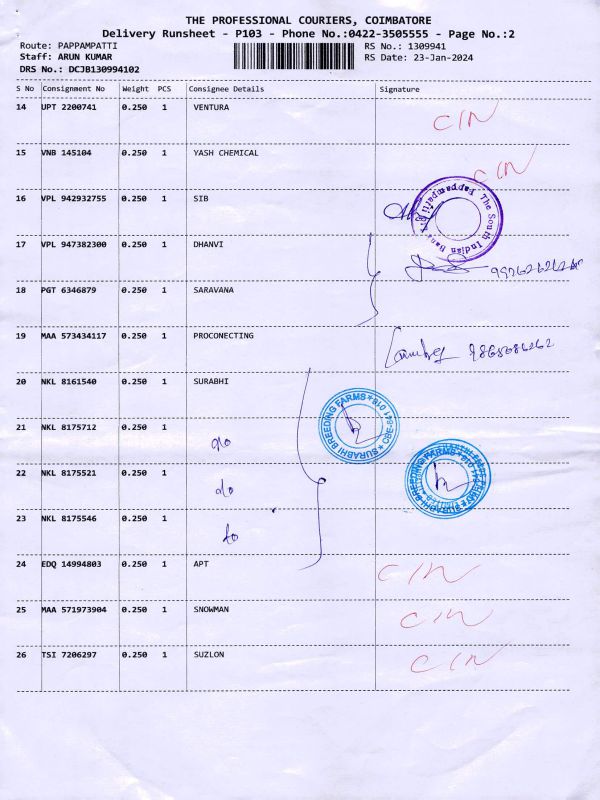 THE PROFESSIONAL COURIERS, COIMBATORE
Delivery Runsheet - P103 - Phone No.:0422-3505555 - Page No.:2
Route: PAPPAMPATTI RS No.: 1309941
Staff: ARUN KUMAR RS Date: 23-Jan-2024
DRS No.: DCJB130994102
S No Consignment No Weight PCS Consignee Details Signature
14 UPT 2200741 0.250 1 VENTURA C/N
15 VNB 145104 0.250 1 YASH CHEMICAL C/N
16 VPL 942932755 0.250 1 SIB
The South Indian Bank Ltd Pappampatti
17 VPL 947382300 0.250 1 DHANVI
18 PGT 6346879 0.250 1 SARAVANA
19 MAA 573434117 0.250 1 PROCONECTING
20 NKL 8161540 0.250 1 SURABHI
SURABHI BREEDING FARMS
21 NKL 8175712 0.250 1 do
22 NKL 8175521 0.250 1 do
SURABHI BREEDING FARMS
23 NKL 8175546 0.250 1 do
24 EDQ 14994803 0.250 1 APT C/N
25 MAA 571973904 0.250 1 SNOWMAN C/N
26 TSI 7206297 0.250 1 SUZLON C/N